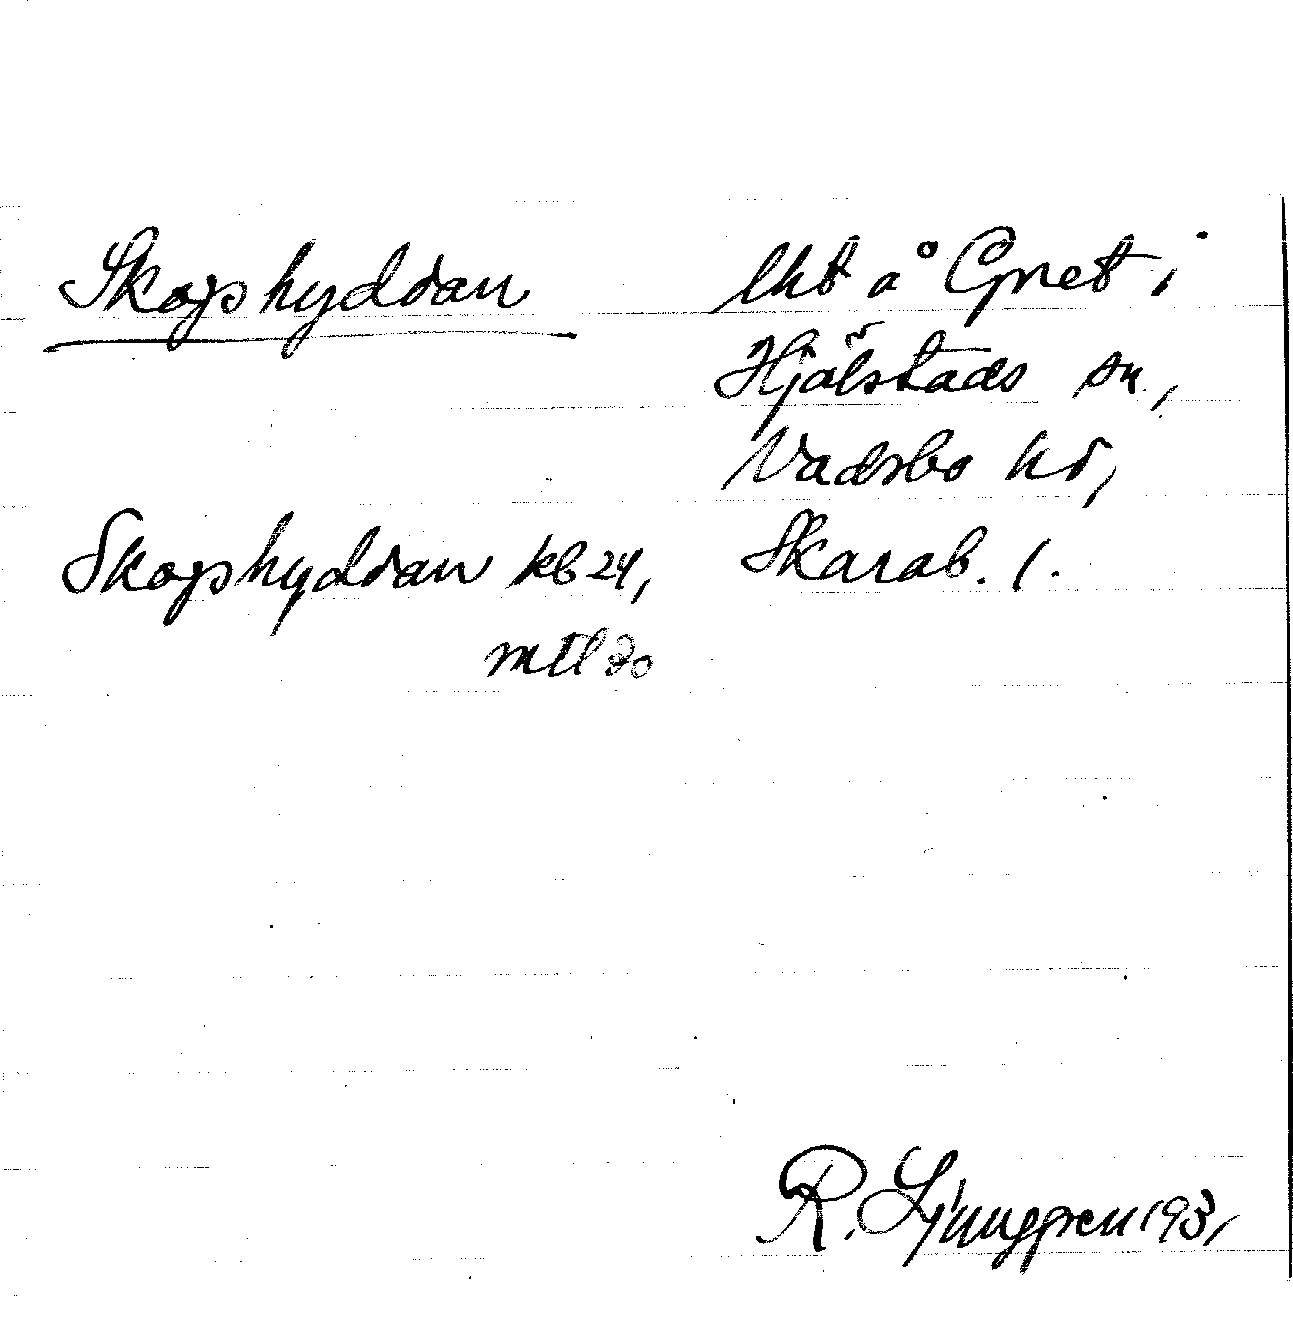 Skogshyddan
lht å Gnet i
Hjälstads sn,
Vadsbo hd,
Skarab. l.
Skogshyddan kb 24,
mtl 30
R. Ljunggren 1931